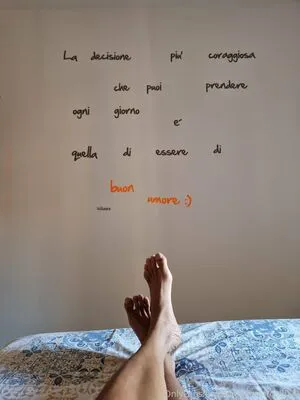 La decisione piu' coraggiosa
che puoi prendere
ogni giorno e'
quella di essere di
buon
umore :)